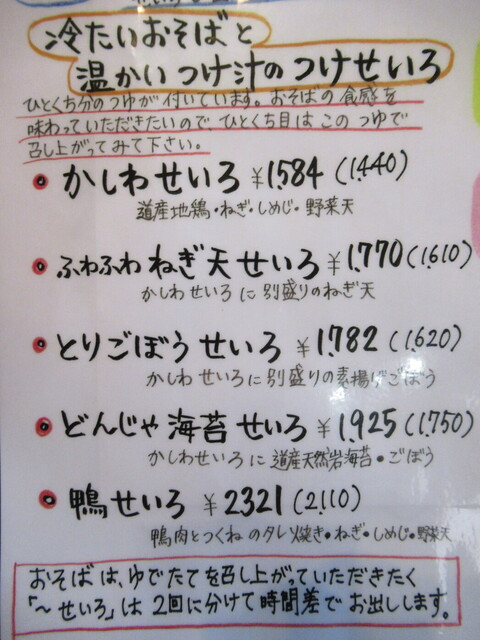 冷たいおそばと
温かいつけ汁のつけせいろ
ひとくち分のつゆが付いています。おそばの食感を
味わっていただきたいので、ひとくち目はこのつゆで
召し上がってみて下さい。
かしわせいろ ¥1,584 (1,440)
道産地鶏・ねぎ・しめじ・野菜天
ふわふわねぎ天せいろ ¥1,770 (1,610)
かしわせいろに別盛りのねぎ天
とりごぼうせいろ ¥1,782 (1,620)
かしわせいろに別盛りの素揚げごぼう
どんじゃ海苔せいろ ¥1,925 (1,750)
かしわせいろに道産天然岩海苔・ごぼう
鴨せいろ ¥2321 (2,110)
鴨肉とつくねのタレ焼き・ねぎ・しめじ・野菜天
おそばは、ゆでたてを召し上がっていただきたく
「〜せいろ」は2回に分けて時間差でお出しします。